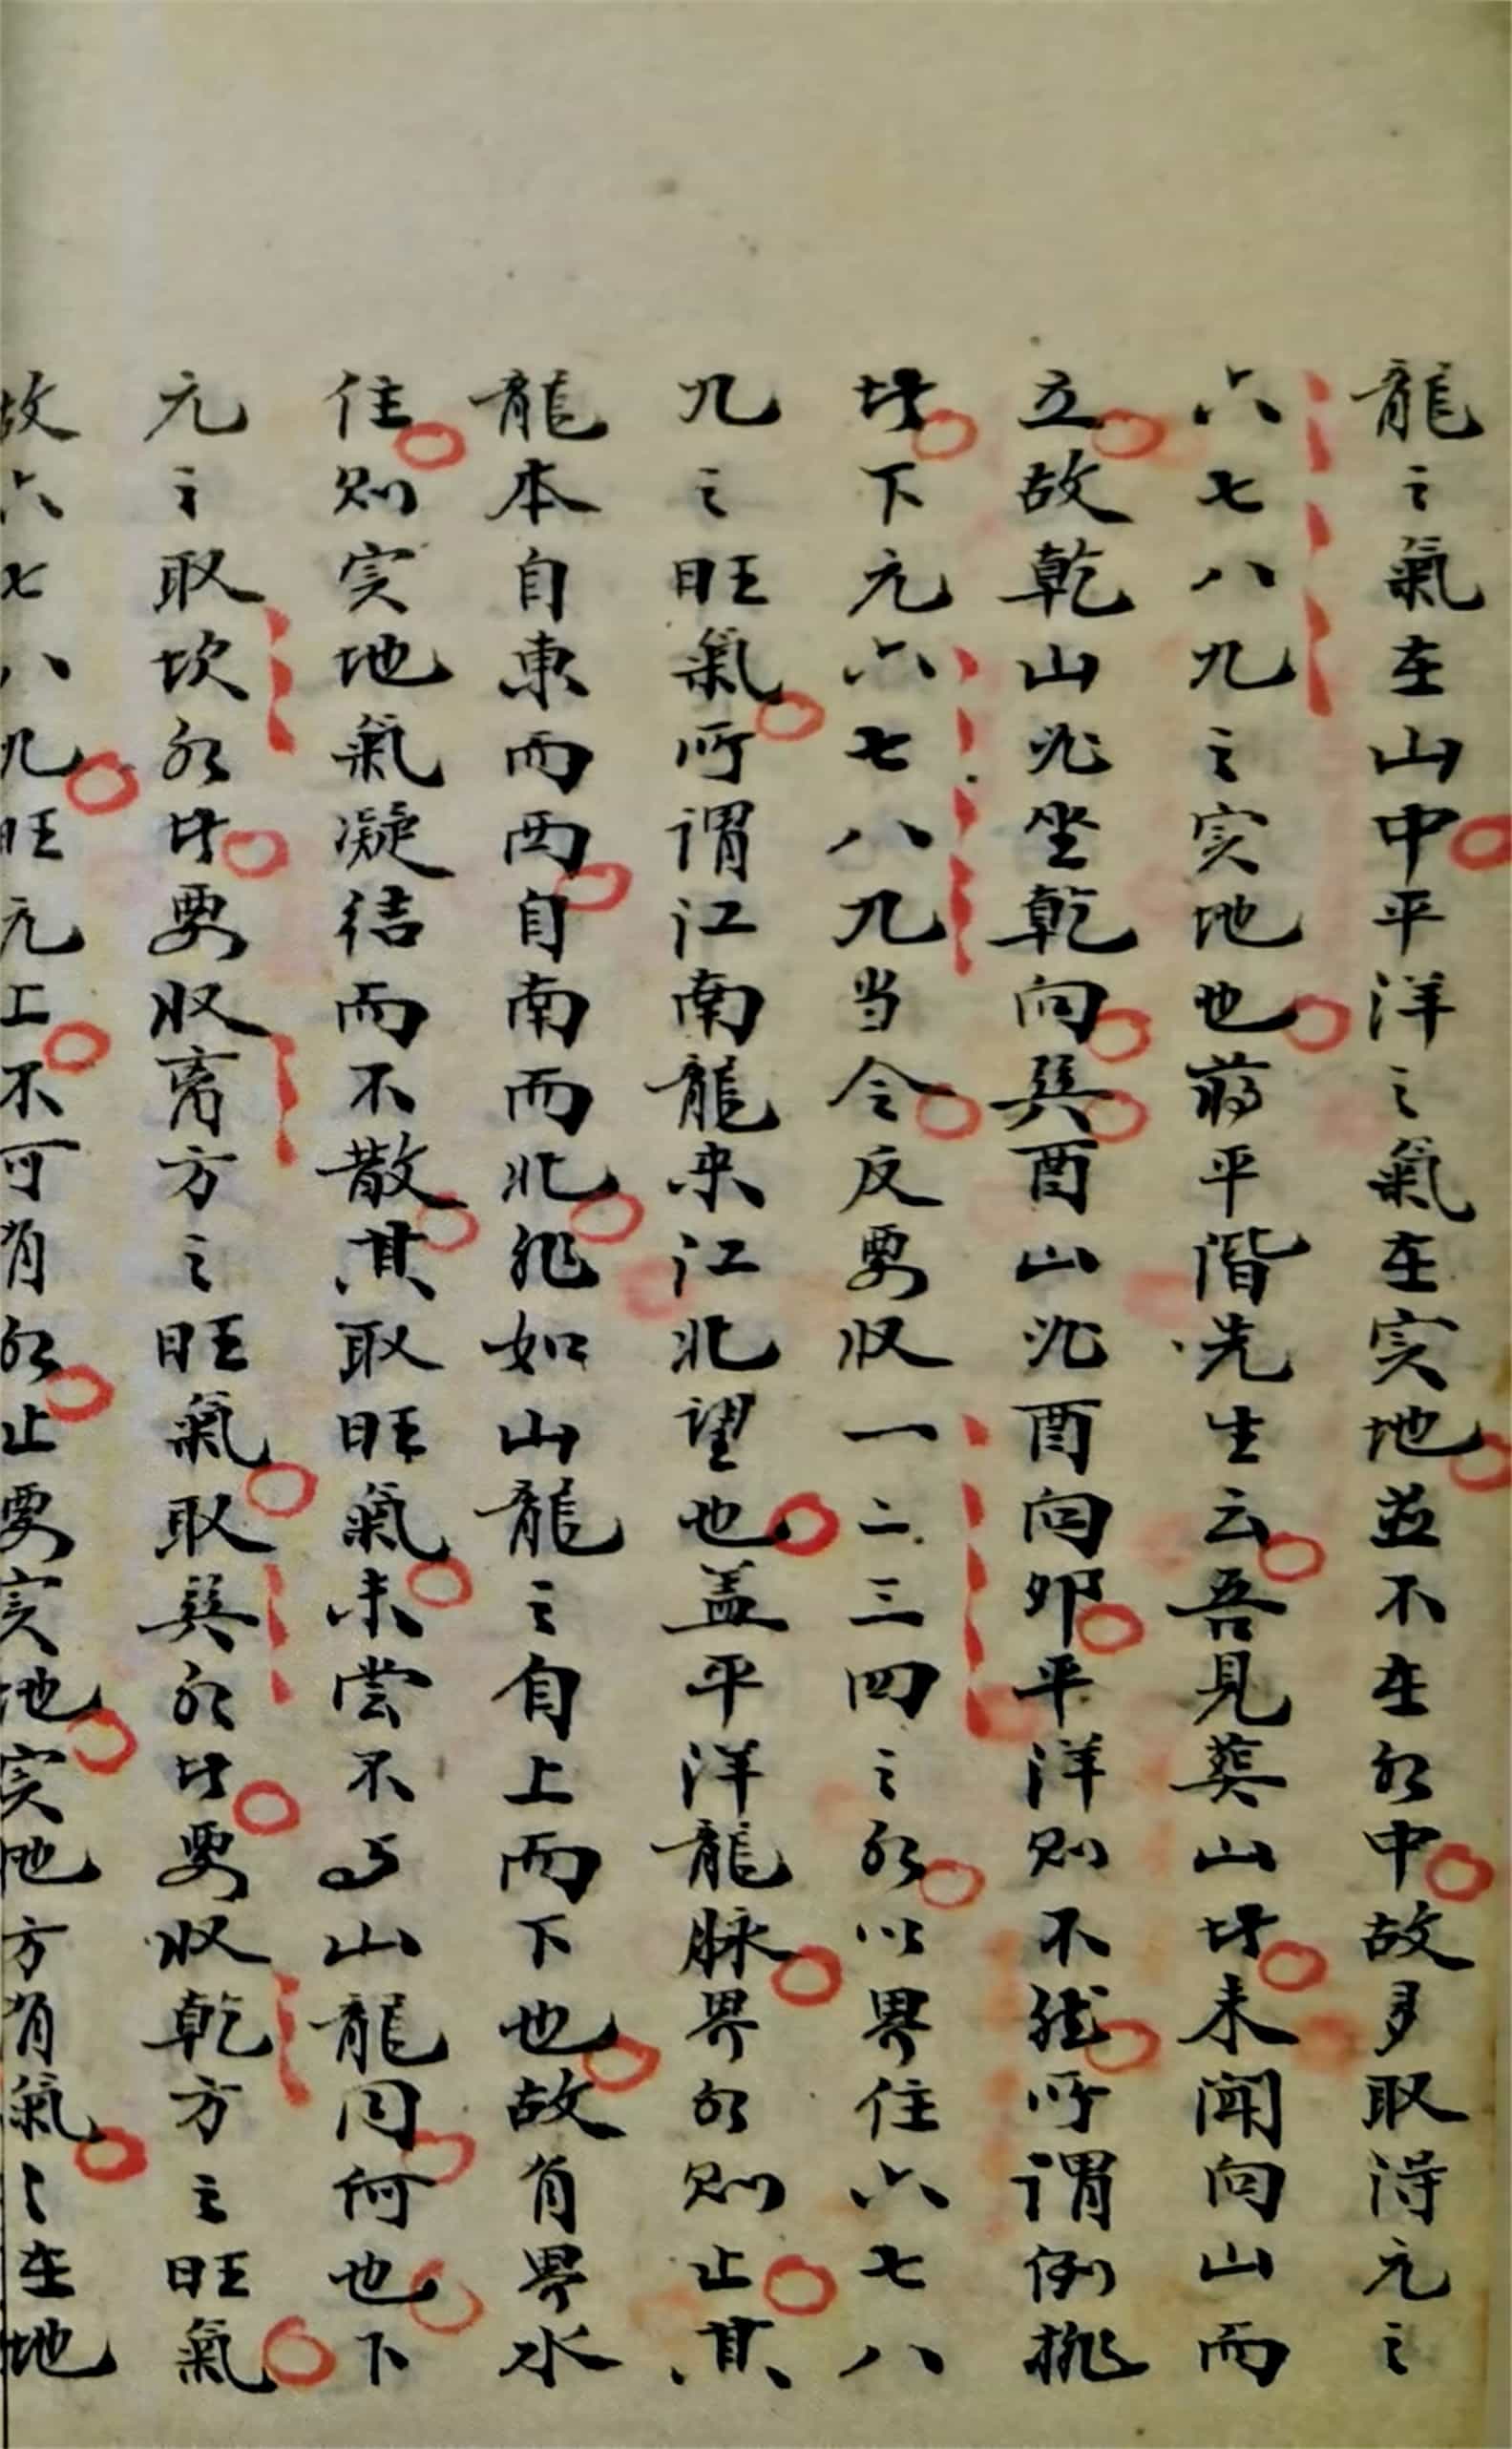 龍之氣在山中平洋之氣在实地並不在水中故多取得元之
六七八九之实地也蒋平階先生云吾見葬山坟未闻向山而
立故乾山必坐乾向巽酉山必酉向卯平洋则不然所謂倒排
坟下元六七八九当令反要收一二三四之水以界住六七八
九之旺氣所謂江南龍来江北望也盖平洋龍脉界水则止其
龍本自東而西自南而北非如山龍之自上而下也故有界水
住则实地氣凝结而不散其取旺氣未尝不与山龍同何也下
元之取坎水者要收离方之旺氣取巽水者要收乾方之旺氣
故六七八九旺元上不可有水止要实地实地方有氣之在地